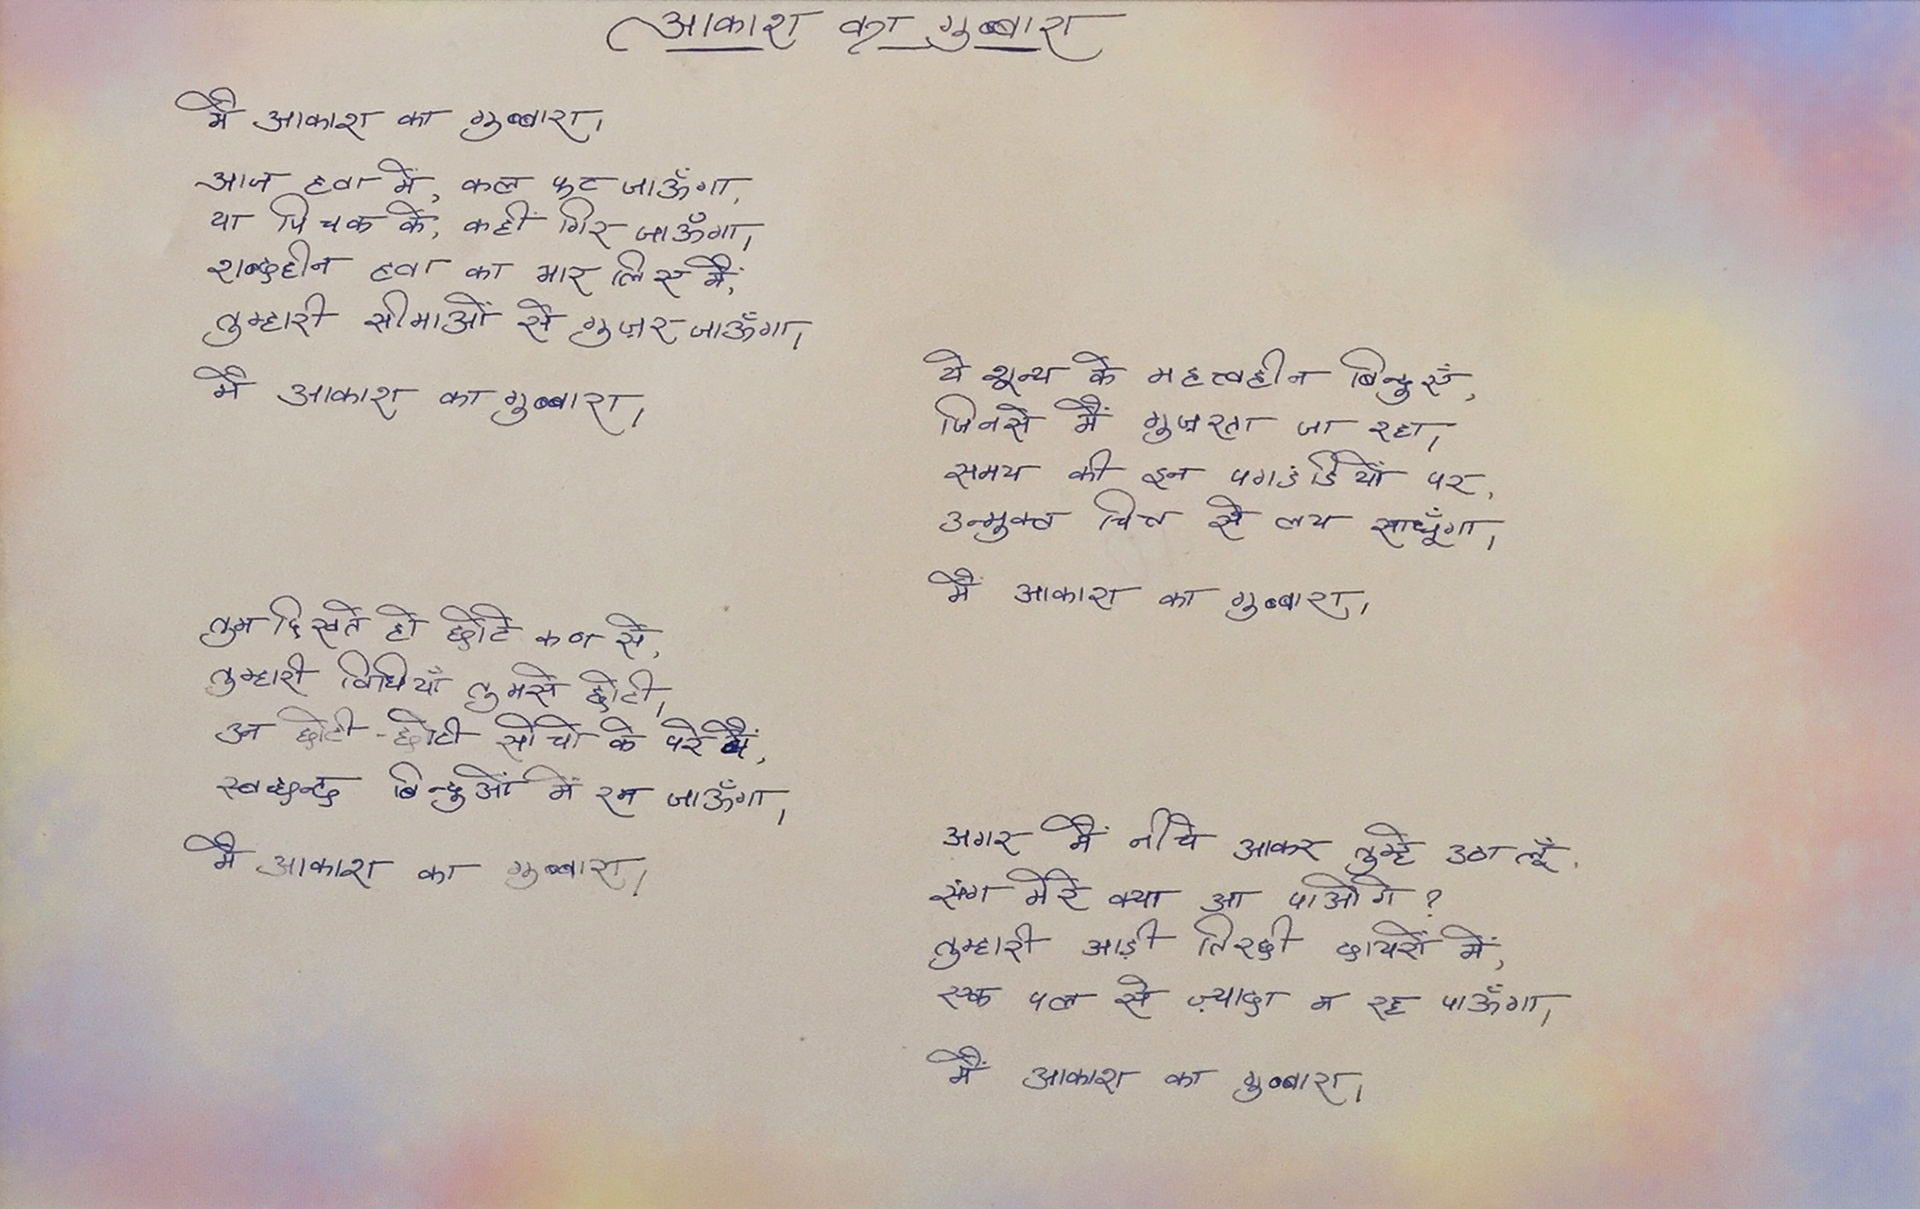 आकाश का गुब्बारा
मैं आकाश का गुब्बारा,
आज हवा में, कल फूट जाऊँगा,
या पिचक के, कहीं गिर जाऊँगा,
शब्दहीन हवा का भार लिए मैं,
तुम्हारी सीमाओं से गुज़र जाऊँगा,
मैं आकाश का गुब्बारा,
तुम दिखते हो छोटे कण से,
तुम्हारी विधियाँ तुमसे छोटी,
उन छोटी-छोटी सोचो के परे मैं,
स्वच्छन्द बिन्दुओं में रम जाऊँगा,
मैं आकाश का गुब्बारा,
ये शून्य के महत्वहीन बिन्दुएँ,
जिनसे मैं गुज़रता जा रहा,
समय की इन पगडंडियों पर,
उन्मुक्त चित्त से लय साधूँगा,
मैं आकाश का गुब्बारा,
अगर मैं नीचे आकर तुम्हे उठा लूँ,
संग मेरे क्या आ पाओगे ?
तुम्हारी आड़ी तिरछी दायरों में,
एक पल से ज़्यादा न रह पाऊँगा,
मैं आकाश का गुब्बारा,